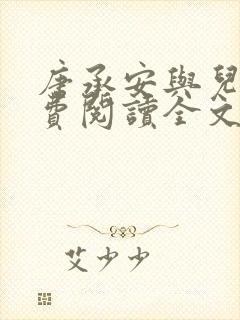 唐承安與兒
費閱讀全文
艾少少